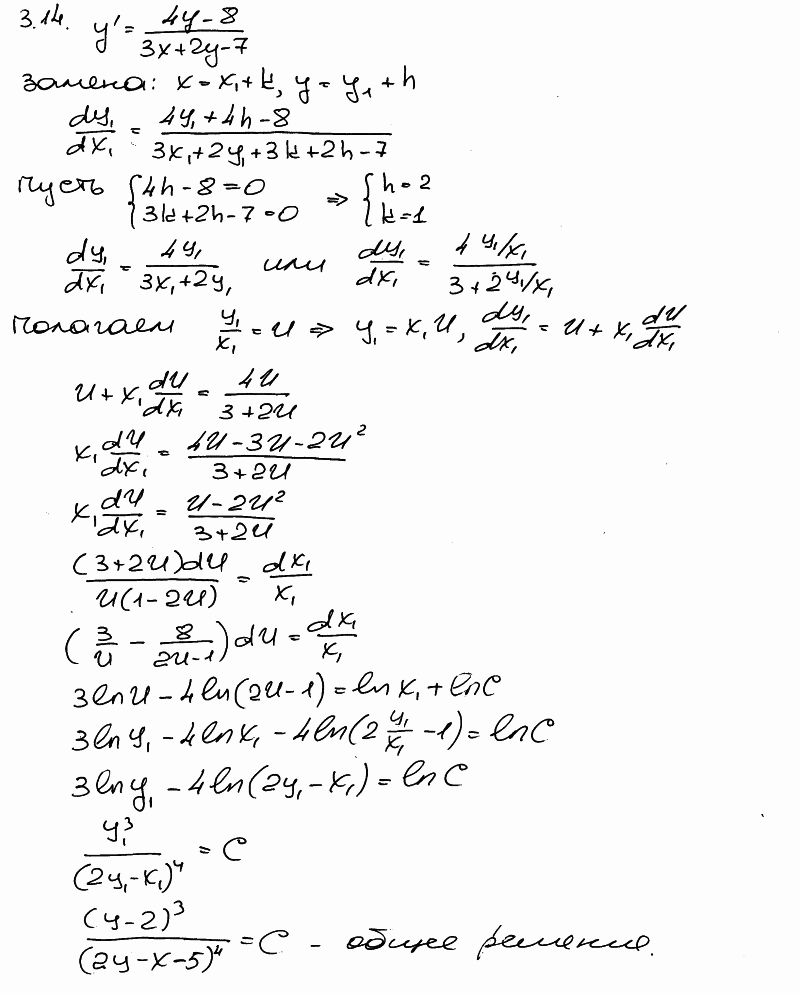 3.14. y' = (4y-8)/(3x+2y-7)
Замена: x = x₁+k, y = y₁+h
dy₁/dx₁ = (4y₁+4h-8)/(3x₁+2y₁+3k+2h-7)
Пусть {4h-8=0 ; 3k+2h-7=0 ⇒ {h=2 ; k=1
dy₁/dx₁ = 4y₁/(3x₁+2y₁) или dy₁/dx₁ = (4 y₁/x₁)/(3+2 y₁/x₁)
Полагаем y₁/x₁ = u ⇒ y₁ = x₁u, dy₁/dx₁ = u + x₁ du/dx₁
u + x₁ du/dx₁ = 4u/(3+2u)
x₁ du/dx₁ = (4u-3u-2u²)/(3+2u)
x₁ du/dx₁ = (u-2u²)/(3+2u)
(3+2u)du/(u(1-2u)) = dx₁/x₁
(3/u - 8/(2u-1))du = dx₁/x₁
3lnu - 4ln(2u-1) = lnx₁ + lnC
3lny₁ - 4lnx₁ - 4ln(2 y₁/x₁ - 1) = lnC
3lny₁ - 4ln(2y₁-x₁) = lnC
y₁³/(2y₁-x₁)⁴ = C
(y-2)³/(2y-x-5)⁴ = C - общее решение.